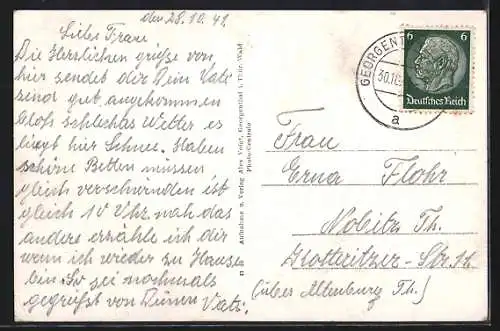 den 28.10.41.
Liebe Frau
Die Herzlichen grüße von
hier sendet dir Dein Vati
sind gut angekommen
bloß schlechtes Wetter es
liegt hier Schnee. Haben
schöne Betten müssen
gleich verschwinden ist
gleich 10 Uhr nah das
andere erzähle ich dir
wenn ich wieder zu Hause
bin. So sei nochmals
gegrüßt von Deinen
Vati.
Aufnahme u. Verlag Alex Voigt, Georgenthal i. Thür. Wald
Photo-Centrale
GEORGENT
30.10.
a
6 6
Deutsches Reich
Frau
Erna Flohr
Nobitz Th.
Str.
(über Altenburg Th.)